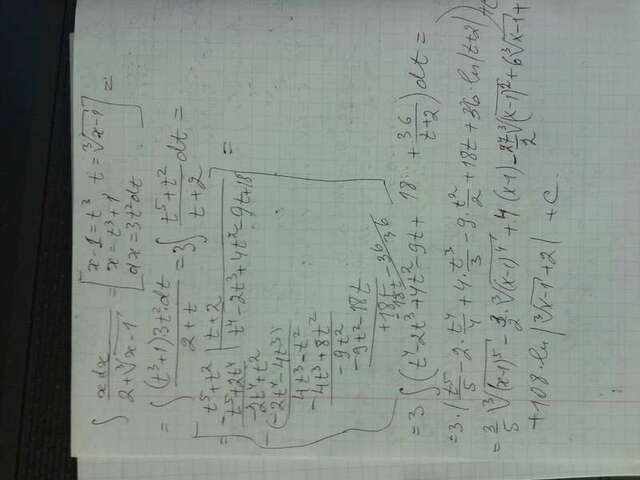 ∫ xdx / (2+∛(x-1)) = [x-1=t³ t=∛(x-1) x=t³+1 dx=3t²dt] =
= ∫ (t³+1)3t²dt / (2+t) = 3∫ (t⁵+t²)/(t+2) dt =
= [t⁵+t² | t+2
t⁵+2t⁴ | t⁴-2t³+4t²-9t+18
-2t⁴+t²
-(-2t⁴-4t³)
4t³-t²
-4t³+8t²
-9t²
-9t²-18t
+18t
18t-36
36] =
=3 ∫ (t⁴-2t³+4t²-9t+18 + 36/(t+2)) dt =
=3·(t⁵/5-2·t⁴/4+4·t³/3-9·t²/2+18t+36·ln|t+2|)+C
=3/5 ∛(x-1)⁵-3/2·∛(x-1)⁴+4(x-1)-27/2 ∛(x-1)²+6∛(x-1)+
+108·ln|∛(x-1)+2|+C.